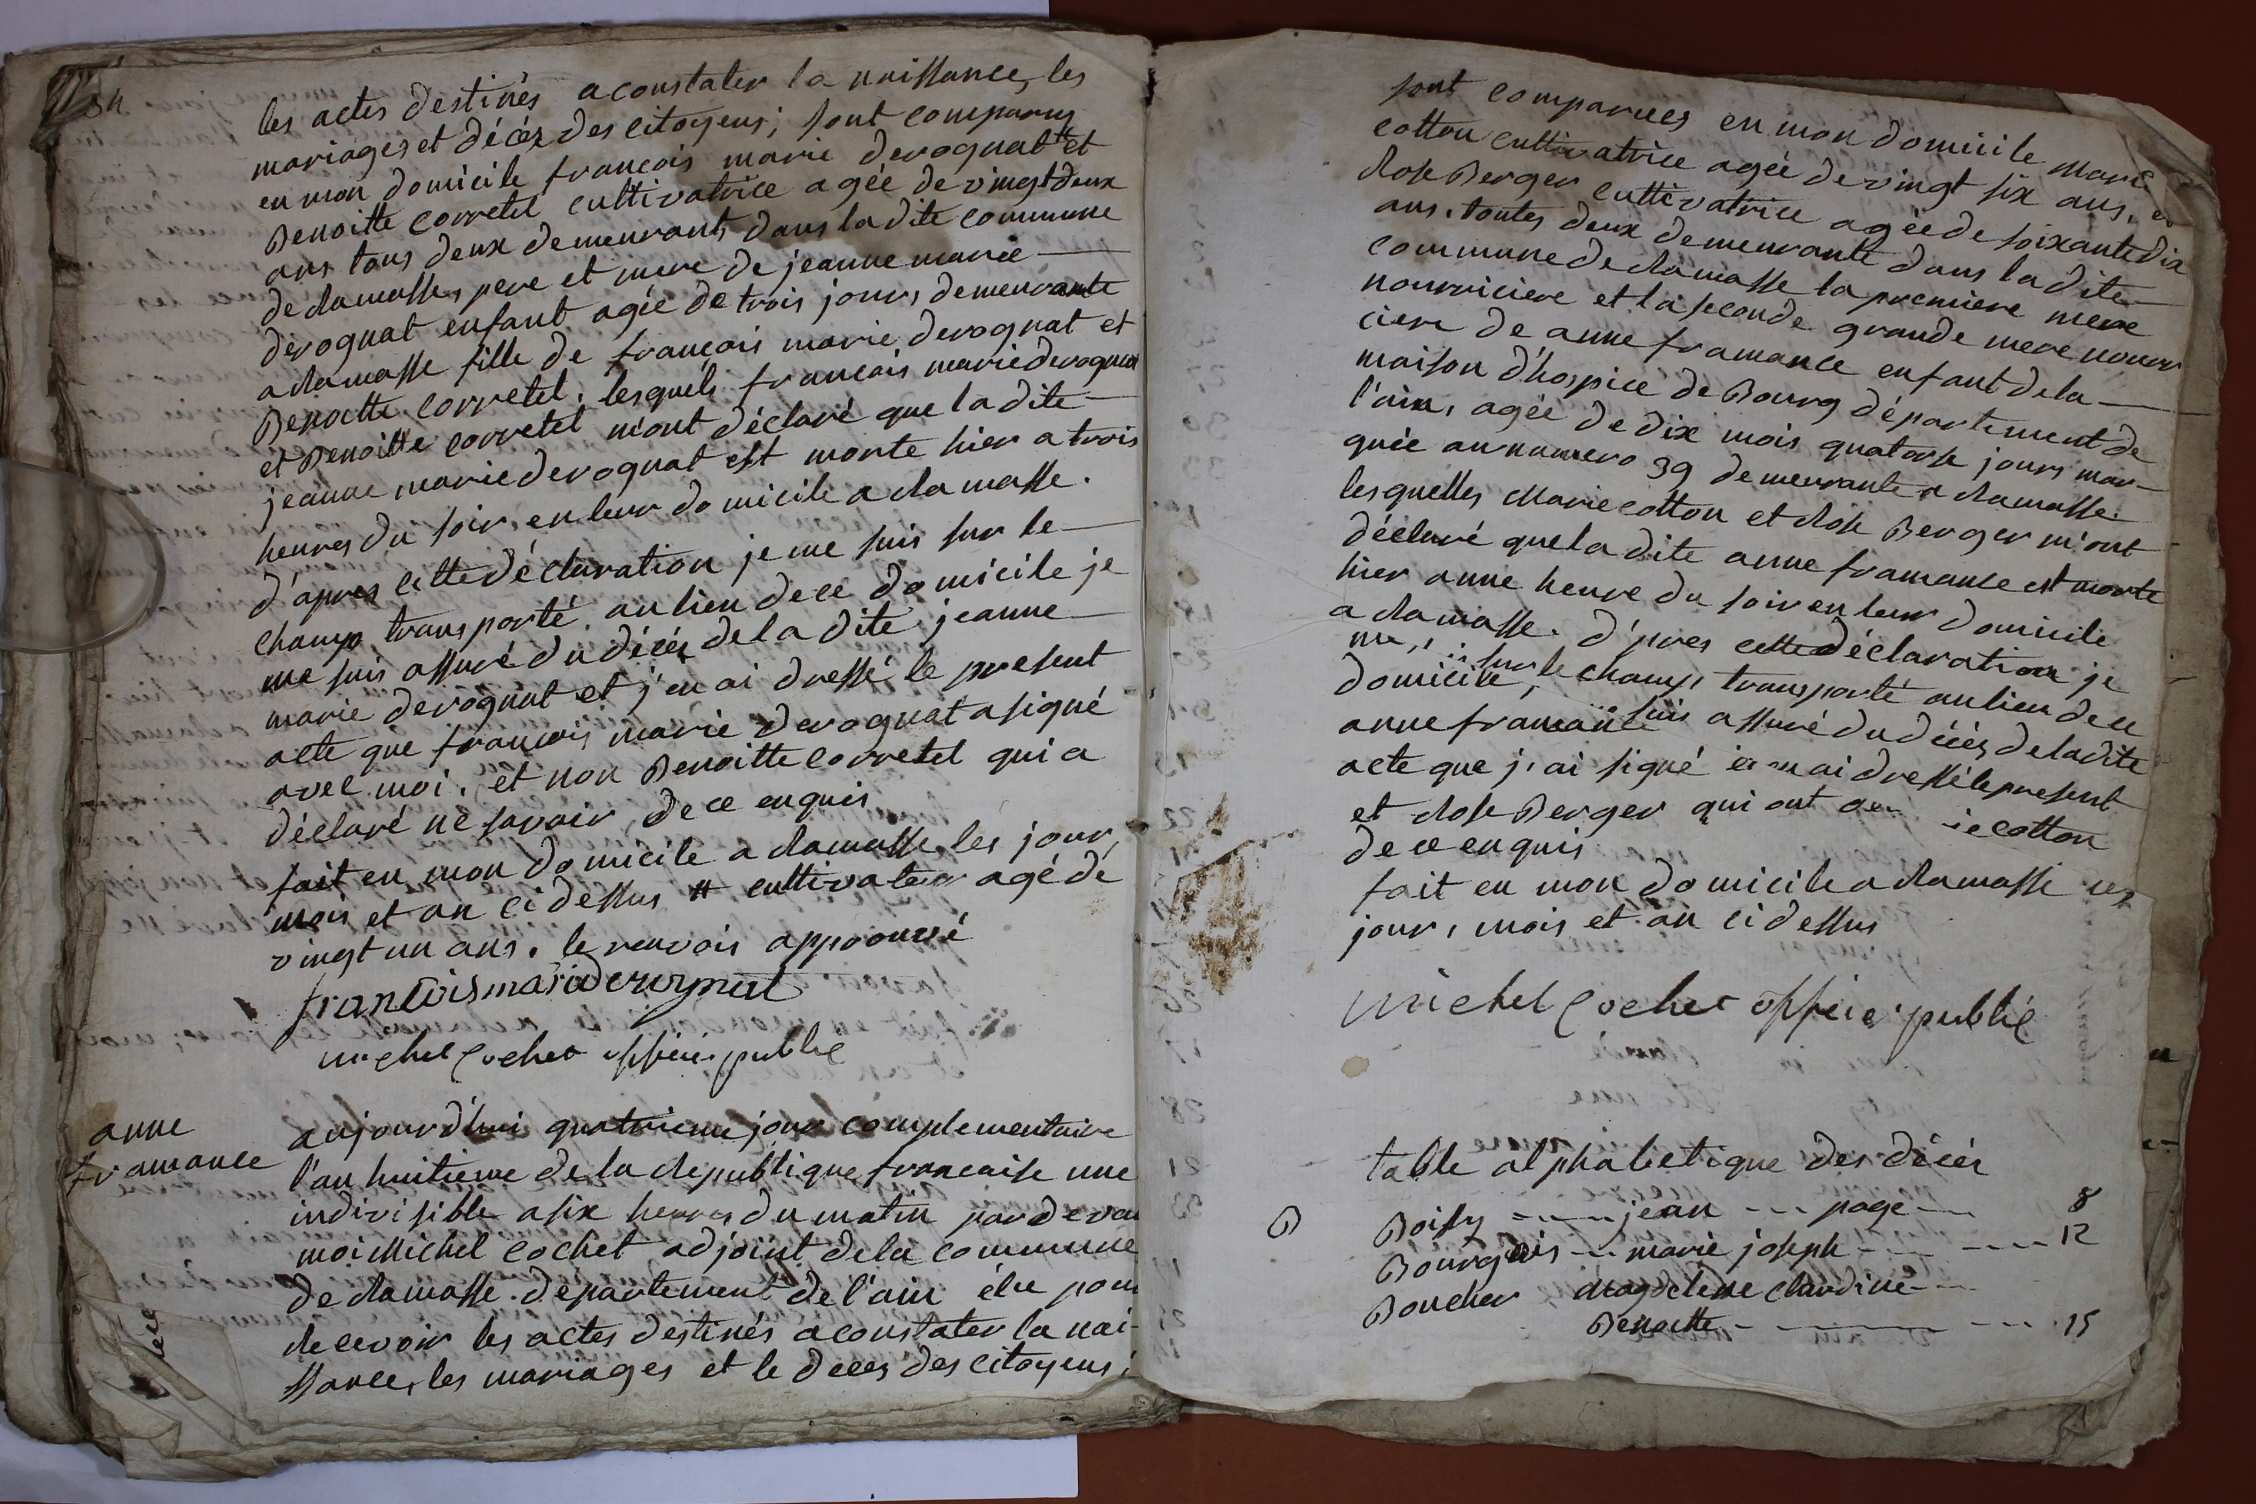 les actes destinés a constater la naissance, les
mariages et décès des citoyens; sont comparus
en mon domicile francois marie derognat # et
Benoitte corretel cultivatrice agée de vingt deux
ans tous deux demeurants dans la dite commune
de Ramasse, pere et mere de jeanne marie
derognat enfant agée de trois jours, demeurante
a Ramasse fille de francois marie derognat et
Benoitte corretel, lesquels francois marie derognat
et Benoitte corretel m'ont déclaré que la dite
jeanne marie derognat est morte hier a trois
heures du soir en leur domicile a Ramasse.
d'apres cette déclaration je me suis sur le
champ transporté au lieu de ce domicile je
me suis assuré du décés de la dite jeanne
marie derognat et j'en ai dressé le present
acte que francois marie derognat a signé
avec moi. et non Benoitte corretel qui a
déclaré ne savoir de ce enquis
fait en mon domicile a Ramasse les jour,
mois et an ci dessus # cultivateur agé de
vingt un ans. le renvois approuvé
francois marie derognat
michel Cochet officie public
anne
framance
aujourd'hui quatrieme jour complementaire
l'an huitieme de la Republique francaise une
indivisible a six heures du matin par devan
moi Michel cochet adjoint de la commune
de Ramasse. departement de l'ain élu pour
Recevoir les actes destinés a constater la nai-
ssance, les mariages et le deces des citoyens;
sont comparues en mon domicile Marie
cotton cultivatrice agée de vingt six ans, et
Rose Berger cultivatrice agée de soixante dix
ans, toutes deux demeurante dans la dite
commune de Ramasse la premiere mere
nourriciere et la seconde grande mere nourri
ciere de anne framance enfant de la
maison d'hospice de Bourg département de
l'ain, agée de dix mois quatorse jours mar-
quée au numero 39 demeurante a Ramasse.
lesquelles Marie cotton et Rose Berger m'ont
déclaré que la dite anne framance est morte
hier a une heure du soir en leur domicile
a Ramasse. d'pres cette déclaration je
me sur le champ transporté au lieu de ce
domicile, suis assuré du décés de la dite
anne framance ai dressé le present
acte que j'ai signé ie cotton
et Rose Berger qui ont
de ce enquis
fait en mon domicile a Ramasse les
jour, mois et an ci dessus
michel Cochet officie public
table alphabetique des décés
B Boissy jean page 8
Bourgeois marie joseph 12
Boucher Magdeleine claudine
Benoitte 15